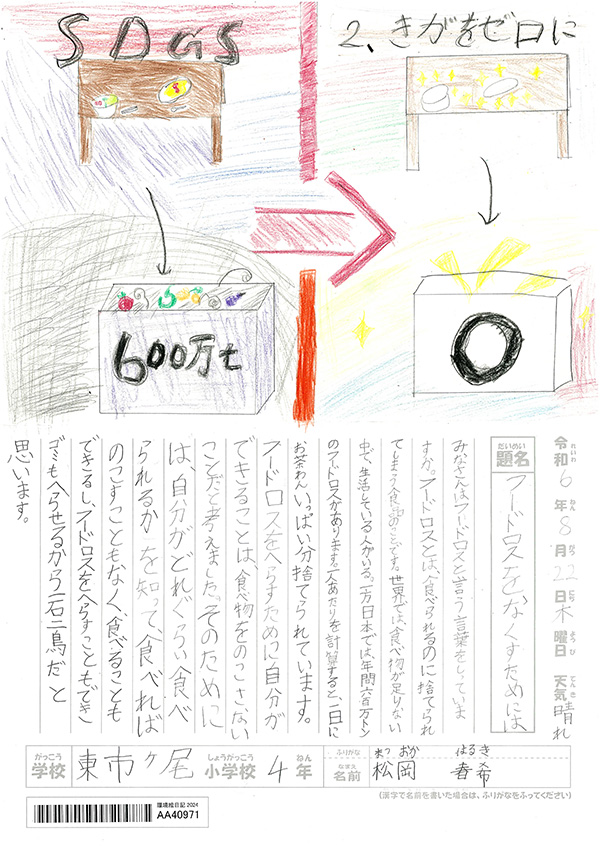 SDGS
2、きがをゼロに
600万t
0
令和6年8月22日木曜日 天気 晴れ
れいわ ねん がつ にち ようび てんき
だいめい
題名
フードロスをなくすためには
みなさんはフードロスと言う言葉をしっていま
すか。フードロスとは、食べられるのに捨てられ
てしまう食品のことです。世界では、食べ物が足りない
中で、生活している人がいる。一方日本では、年間六百万トン
のフードロスがあります。一人あたりを計算すると、一日に
お茶わんいっぱい分捨てられています。
フードロスをへらすために自分が
できることは、食べ物をのこさない
ことだと考えました。そのために
は、自分がどれぐらい食べ
られるか を知って食べれば
のこすこともなく、食べることも
できるし、フードロスをへらすこともでき
ゴミもへらせるから一石二鳥だ と
思います。
がっこう しょうがっこう ねん
学校 東市ヶ尾 小学校 4年
ふりがな まつ おか はるき
なまえ
名前 松岡 春希
(漢字で名前を書いた場合は、ふりがなをふってください)
環境絵日記 2024
AA40971